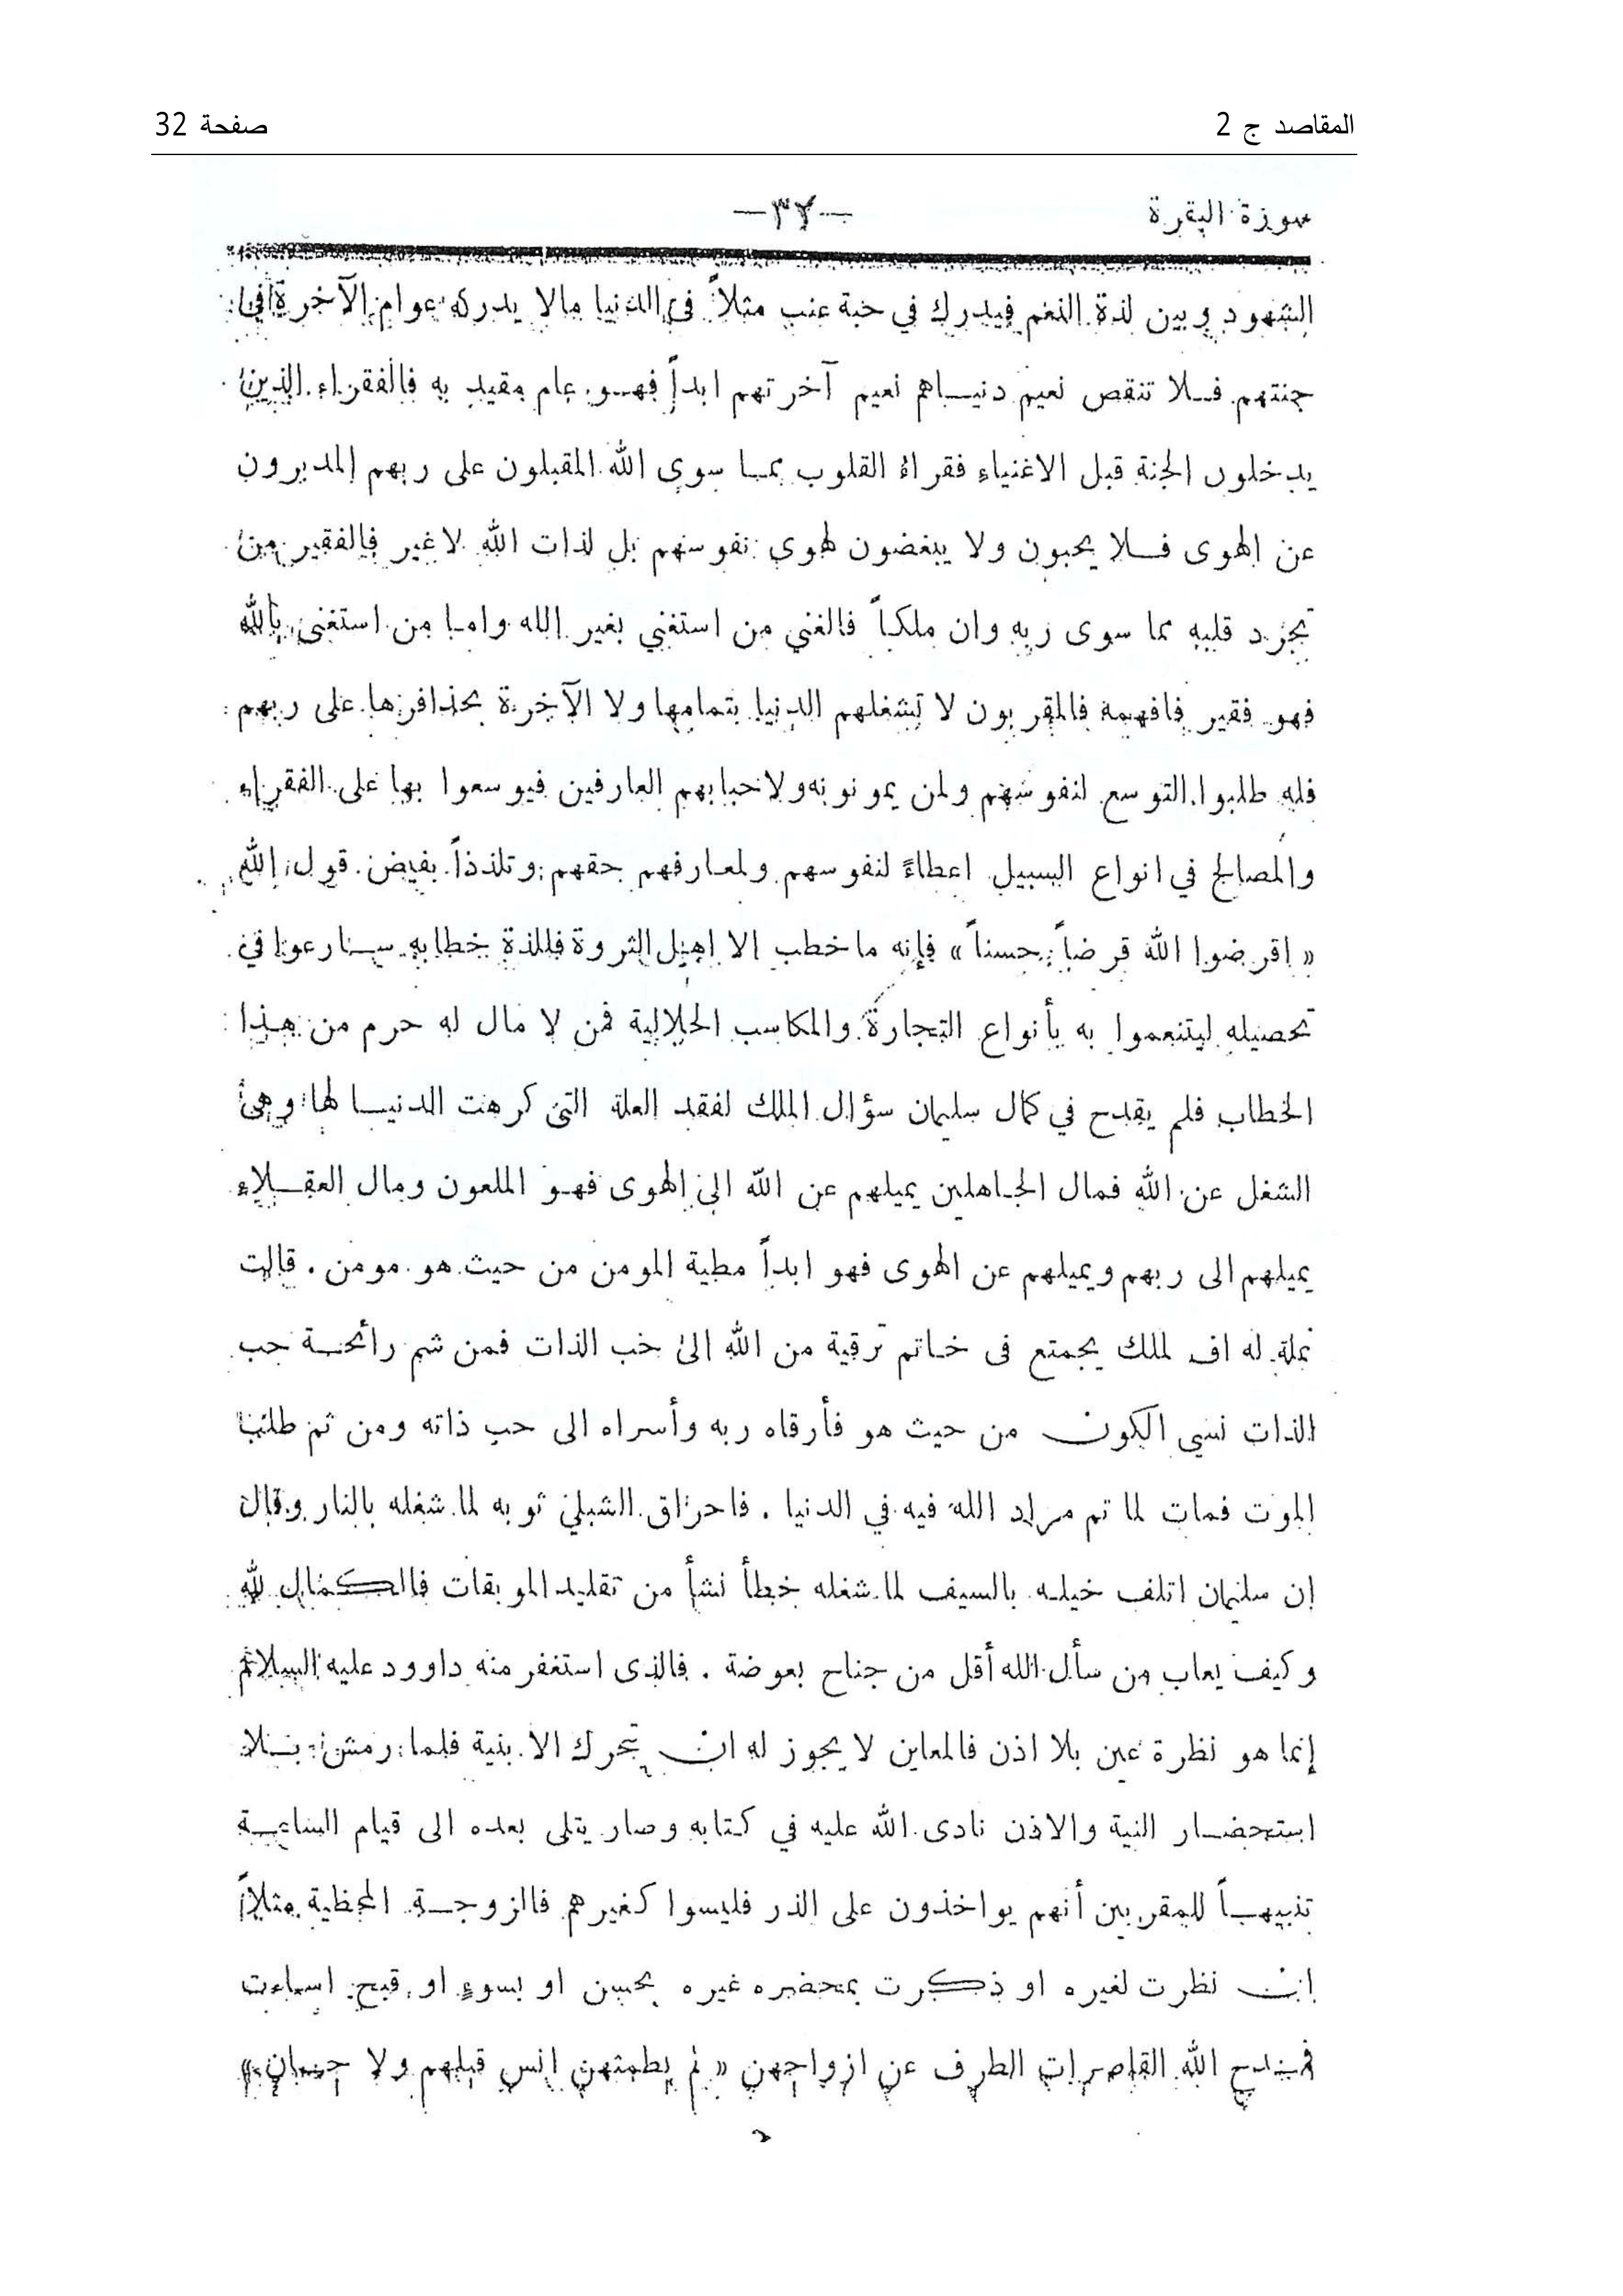 المقاصد ج 2
صفحة 32
سورة البقرة
—٣٢—
الشهود وبين لذة النغم فيدرك في حبة عنب مثلاً في الدنيا مالا يدركه عوام الآخرة في
جنتهم فلا تنقص نعيم دنياهم نعيم آخرتهم ابداً فهو عام مقيد به فالفقراء الذين
يدخلون الجنة قبل الاغنياء فقراء القلوب عما سوى الله المقبلون على ربهم المدبرون
عن الهوى فلا يحبون ولا يبغضون لهوى نفوسهم بل لذات الله لا غير فالفقير من
تجرد قلبه عما سوى ربه وان ملكاً فالغني من استغني بغير الله واما من استغنى بالله
فهو فقير فافهمه فالمقربون لا تشغلهم الدنيا بتمامها ولا الآخرة بحذافرها على ربهم
فله طلبوا التوسع لنفوسهم ولمن يمونونه ولاحبابهم العارفين فيوسعوا بها على الفقراء
والمصالح في انواع السبيل اعطاءً لنفوسهم ولمعارفهم حقهم وتلذذاً بفيض قول الله
« اقرضوا الله قرضاً حسناً » فإنه ما خطب الا اهل الثروة فللذة خطابه سارعوا في
تحصيله ليتنعموا به بأنواع التجارة والمكاسب الحلالية فمن لا مال له حرم من هذا
الخطاب فلم يقدح في كمال سليمان سؤال الملك لفقد العلة التى كرهت الدنيا لها وهى
الشغل عن الله فمال الجاهلين يميلهم عن الله الى الهوى فهو الملعون ومال العقلاء
يميلهم الى ربهم ويميلهم عن الهوى فهو ابداً مطية المومن من حيث هو مومن . قالت
نملة له اف لملك يجمتع فى خاتم ترقية من الله الى حب الذات فمن شم رائحة حب
الذات نسي الكون من حيث هو فأرقاه ربه وأسراه الى حب ذاته ومن ثم طلب
الموت فمات لما تم مراد الله فيه في الدنيا . فاحراق الشبلي ثوبه لما شغله بالنار وقال
إن سليمان اتلف خيله بالسيف لما شغله خطأ نشأ من تقليد الموبقات فالكمال لله
وكيف يعاب من سأل الله أقل من جناح بعوضة . فالذى استغفر منه داوود عليه السلام
إنما هو نظرة عين بلا اذن فالمعاين لا يجوز له ان يتحرك الا بنية فلما رمش بلا
استحضار النية والاذن نادى الله عليه في كتابه وصار يتلى بعده الى قيام الساعة
تنبيهاً للمقربين أنهم يواخذون على الذر فليسوا كغيرهم فالزوجة المحظية مثلاً
ان نظرت لغيره او ذكرت بمحضره غيره بحسن او بسوءٍ او قبح اساءت
فمدح الله القاصرات الطرف عن ازواجهن « لم يطمثهن انس قبلهم ولا جان »